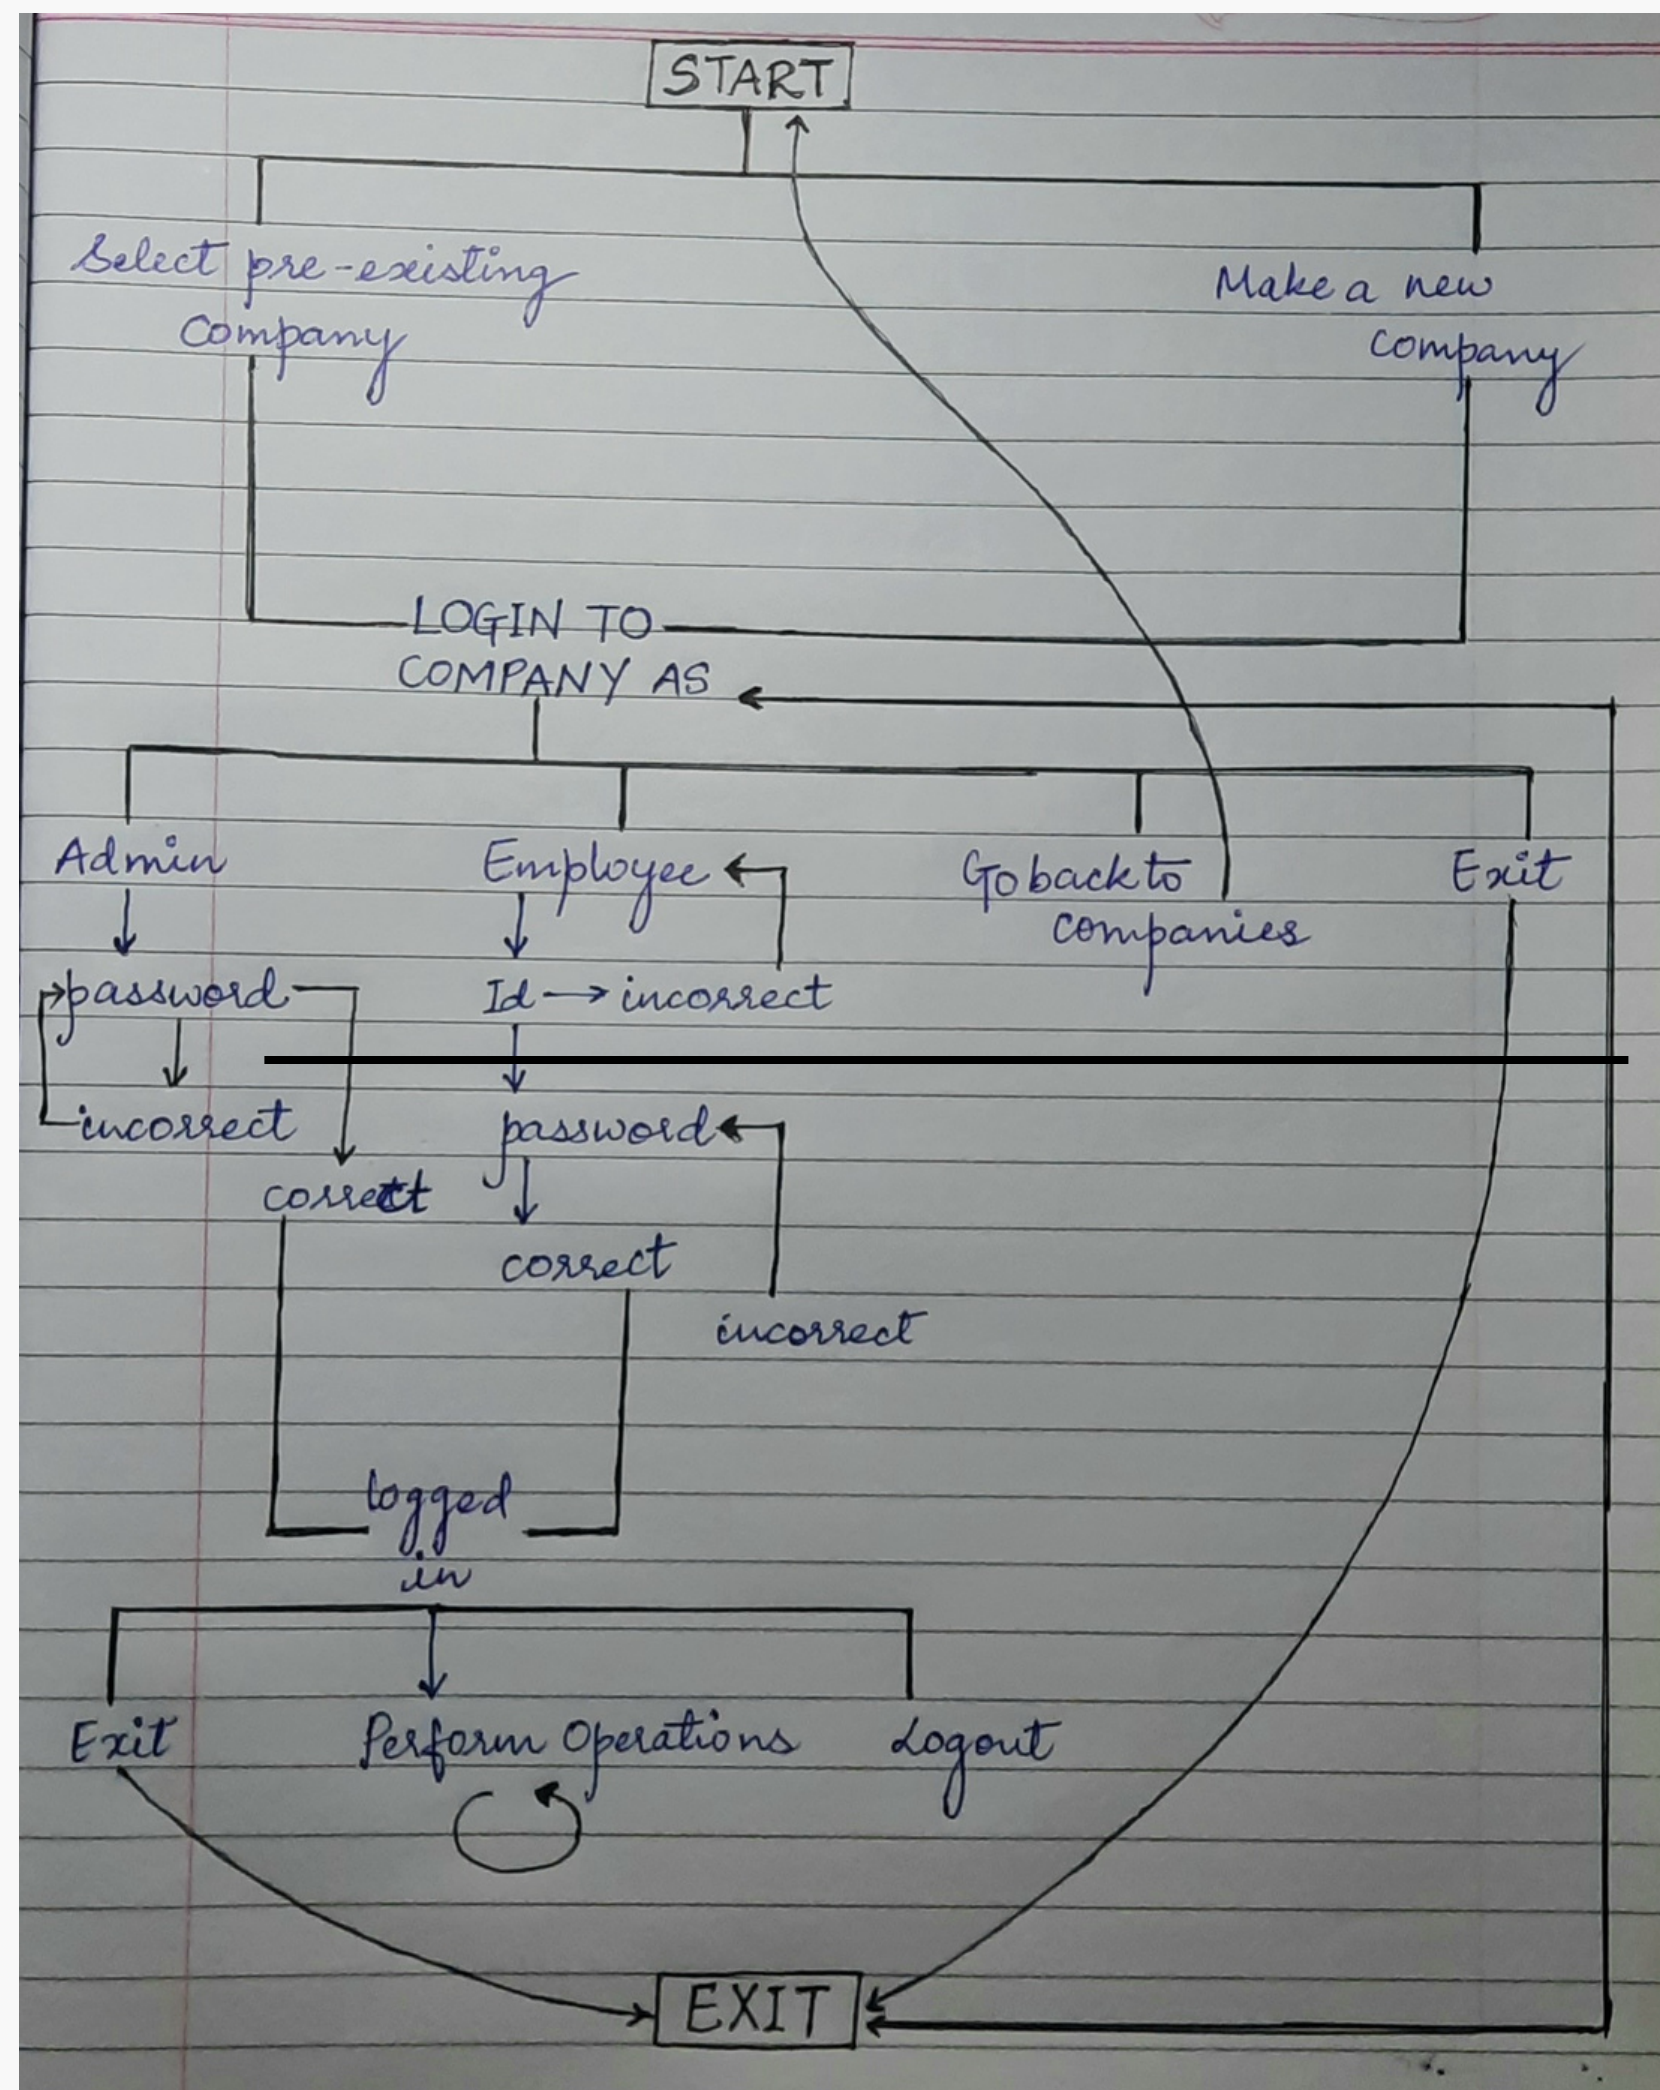 START
Select pre-existing
Company
Make a new
company
LOGIN TO
COMPANY AS
Admin
Employee
Go back to
companies
Exit
password
Id → incorrect
incorrect
password
correct
correct
incorrect
logged
in
Exit
Perform Operations
Logout
EXIT